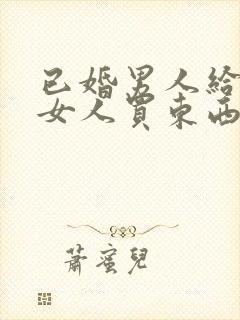 已婚男人给
女人買东西
蕭蜜兒